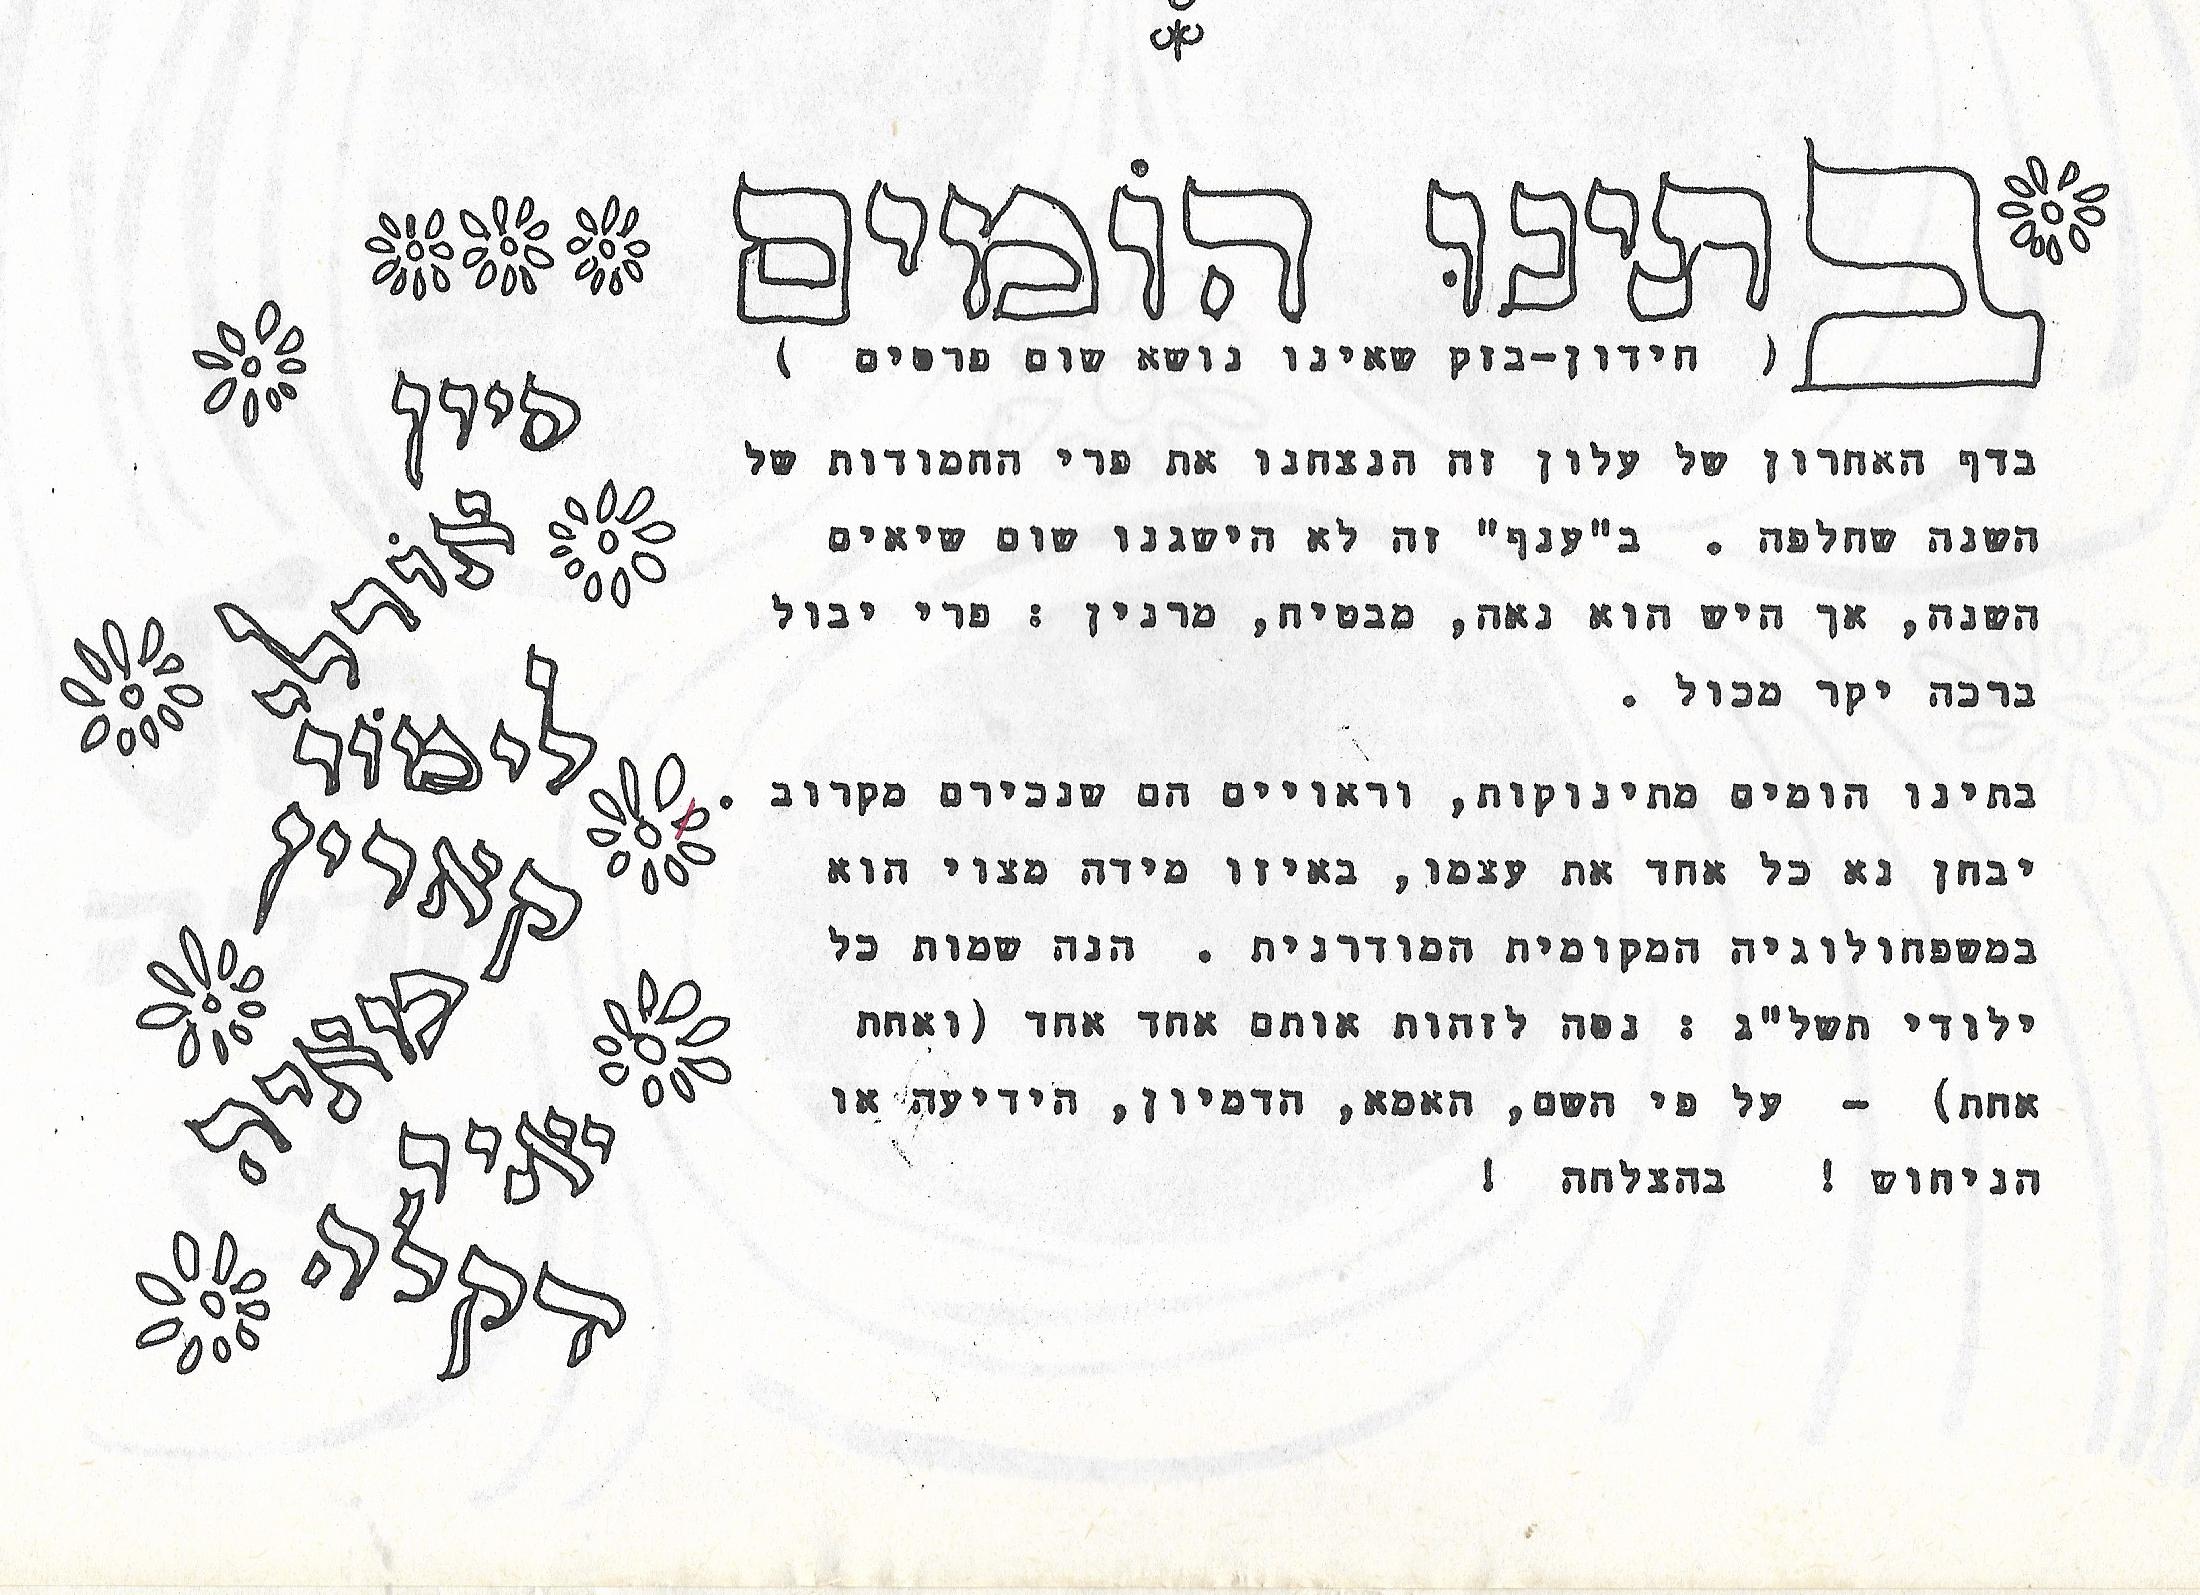 בתינו הומים
( חידון-בזק שאינו נושא שום פרסים )
בדף האחרון של עלון זה הנצחנו את פרי החמודות של
השנה שחלפה . ב"ענף" זה לא הישגנו שום שיאים
השנה, אך היש הוא נאה, מבטיח, מרנין : פרי יבול
ברכה יקר מכול .
בתינו הומים מתינוקות, וראויים הם שנכירם מקרוב .
יבחן נא כל אחד את עצמו, באיזו מידה מצוי הוא
במשפחולוגיה המקומית המודרנית . הנה שמות כל
ילודי תשל"ג : נסה לזהות אותם אחד אחד (ואחת
אחת) - על פי השם, האמא, הדמיון, הידיעה או
הניחוש ! בהצלחה !
סירן
אורלי
לימור
קארין
מאיה
יאיר
דקלה